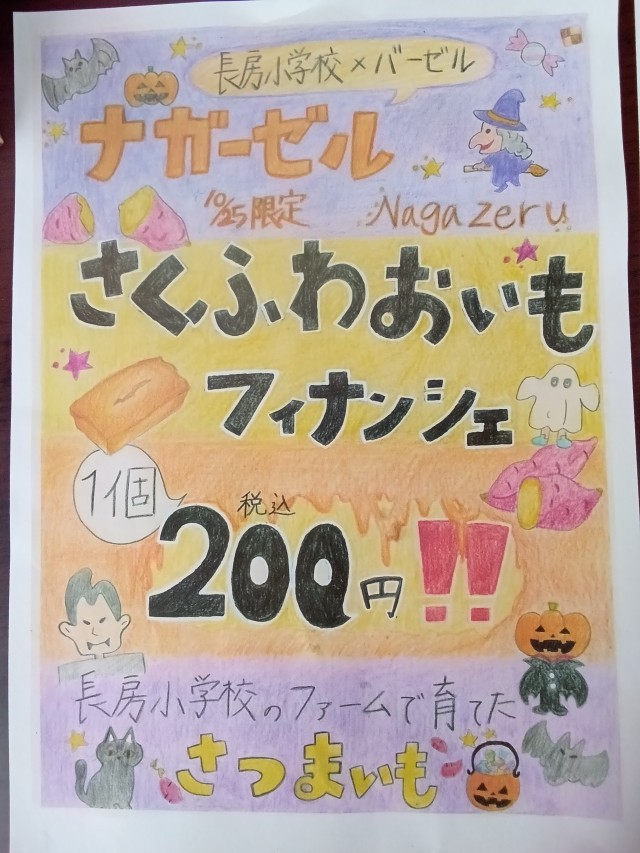 長房小学校×バーゼル
ナガーゼル
10/25限定 Nagazeru
さくふわおいも
フィナンシェ
1個
税込
200円!!
長房小学校のファームで育てた
さつまいも